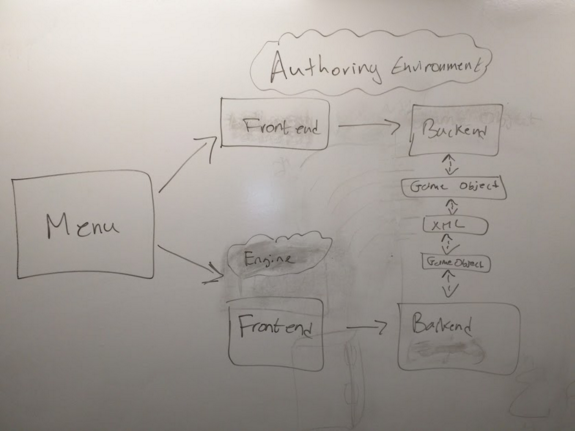 Authoring Environment
Frontend
Backend
Game Object
XML
Game Object
Menu
Engine
Frontend
Backend